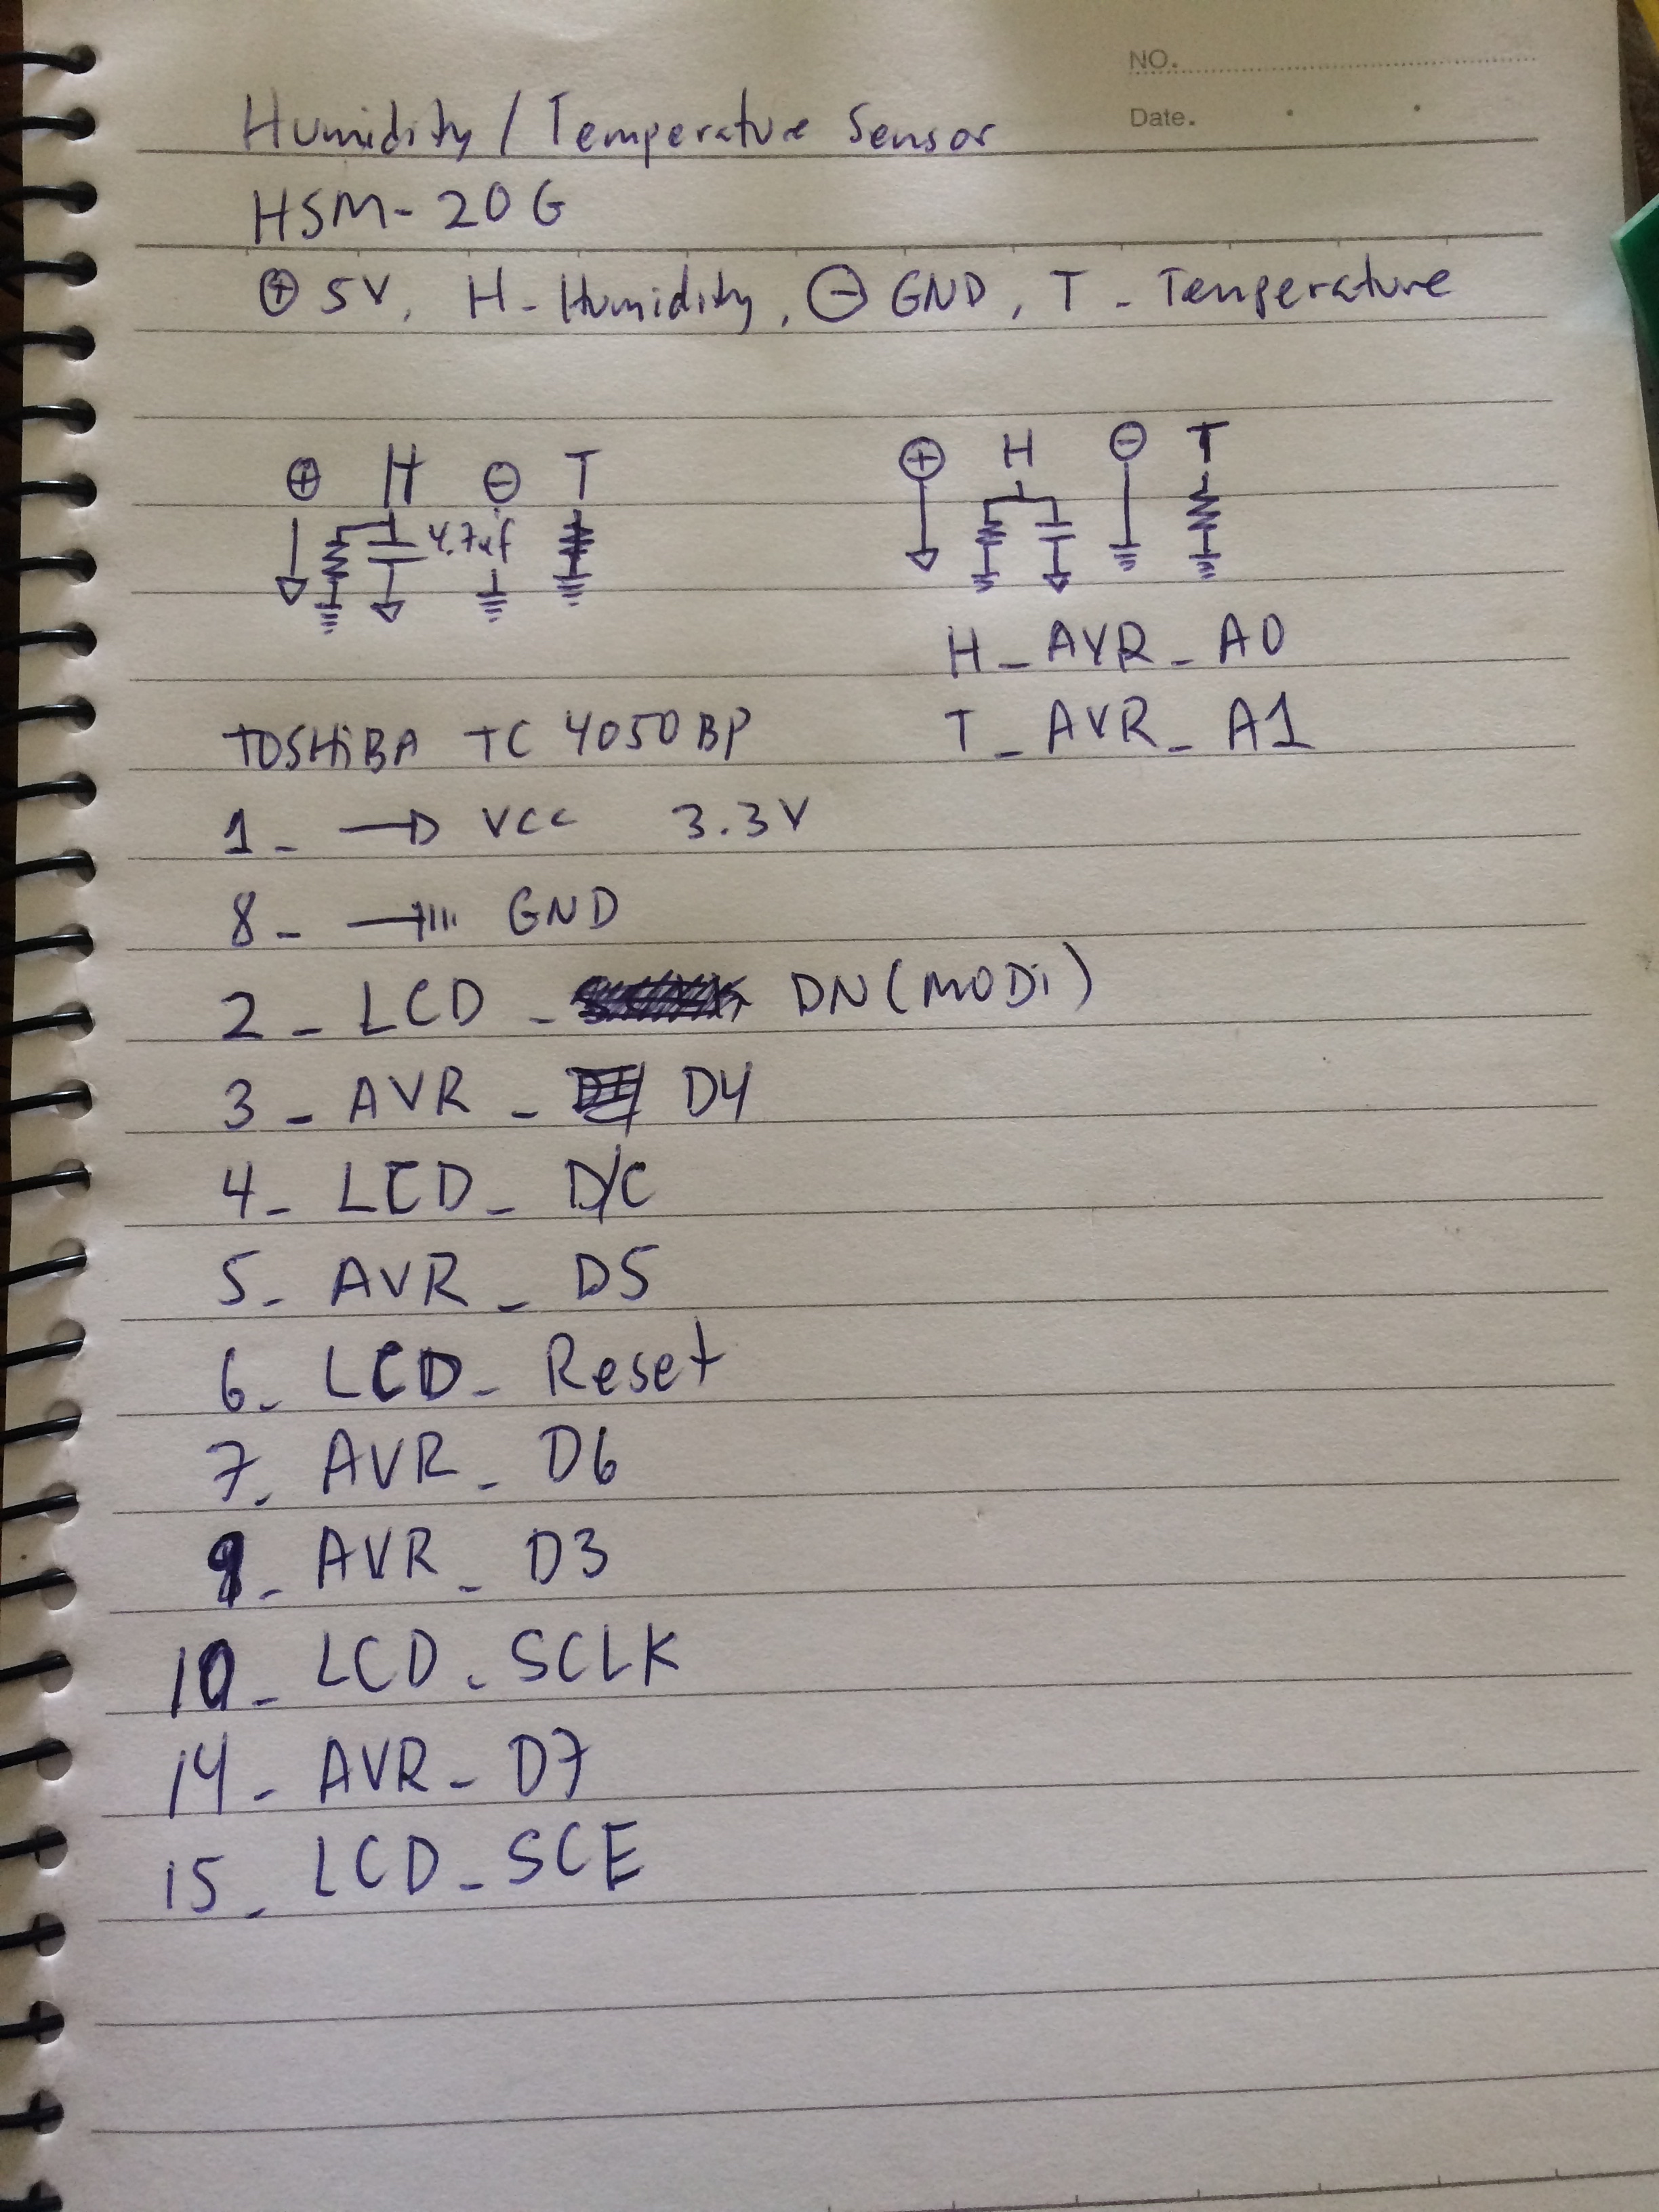 NO.
Date.
Humidity / Temperature Sensor
HSM-20G
⊕ 5V, H - Humidity, ⊖ GND, T - Temperature
⊕ H ⊖ T
4.7uf
⊕ H ⊖ T
H _ AVR _ A0
T _ AVR _ A1
TOSHiBA TC 4050BP
1 - VCC 3.3V
8 - GND
2 - LCD - DN(MODi)
3 - AVR - D4
4 - LCD - D/C
5 - AVR - D5
6 - LCD - Reset
7 - AVR - D6
9 - AVR - D3
10 - LCD - SCLK
14 - AVR - D7
15 - LCD - SCE